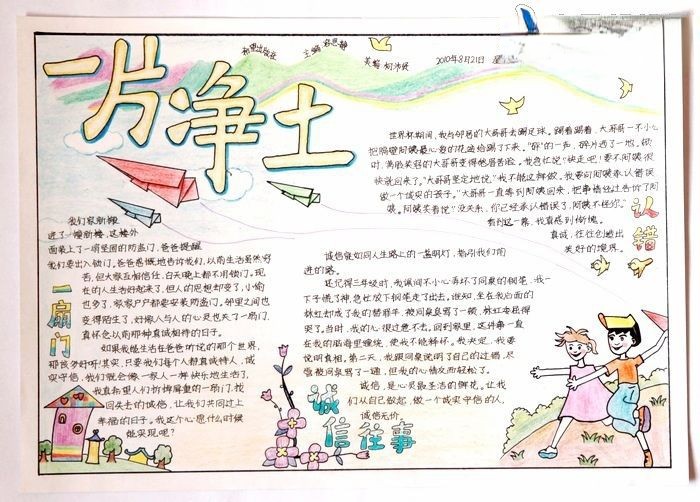 一片净土
希望出版社
主编
美编
2010年8月21日
世界杯期间，我与邻居的大哥哥去踢足球。踢着踢着，大哥哥一不小心
把隔壁阿姨最心爱的花盆给踢了下来。“砰”的一声，碎片洒了一地。彼
时，满脸笑容的大哥哥变得愁眉苦脸。我急忙说：“快走吧！要不阿姨很
快就回来了。”大哥哥坚定地说：“我不能这样做。我要向阿姨承认错误
做一个诚实的孩子。”大哥哥一直等到阿姨回来，把事情经过告诉了阿
姨。阿姨笑着说：“没关系，你已经承认错误了，阿姨不怪你。”
看到这一幕，我真感到惭愧。
真诚，往往创造出
美好的境界。
认错
一扇门
我们家新搬
进了一幢新楼，这楼外
面装上了一扇坚固的防盗门，爸爸提醒
我们要出入锁门。爸爸感慨地告诉我们，以前生活虽然穷
苦，但大家互相信任，白天晚上都不用锁门。现
在的人生活好起来了，但人的思想却变了，小偷
也多了，家家户户都要安装防盗门。邻里之间也
变得陌生了，好像人与人的心灵也关了一扇门，
真怀念以前那种真诚相待的日子。
如果我能生活在爸爸所说的那个世界，
那该多好啊！其实，只要我们每个人都真诚待人，诚
实守信，我们就会像一家人一样快乐地生活了。
我真希望人们拆掉厚重的一扇门，找
回失去的诚信，让我们共同过上
幸福的日子。我这个心愿什么时候
能实现呢？
诚信就如同人生路上的一盏明灯，指引我们前
进的路。
还记得三年级时，我课间不小心弄坏了同桌的钢笔，我一
下子慌了神，急忙放下钢笔走了出去。谁知，坐在我后面的
林虹却成了我的替罪羊，被同桌骂了一顿，林虹委屈得
哭了。当时，我的心很过意不去。回到家里，这件事一直
在我的脑海里缠绕，使我不能释怀。我决定，我要
说明真相。第二天，我跟同桌说明了自己的过错，尽
管被同桌骂了一通，但我的心情反而轻松了。
诚信，是心灵最圣洁的鲜花。让我
们从自己做起，做一个诚实守信的人。
诚信无价。
诚信往事